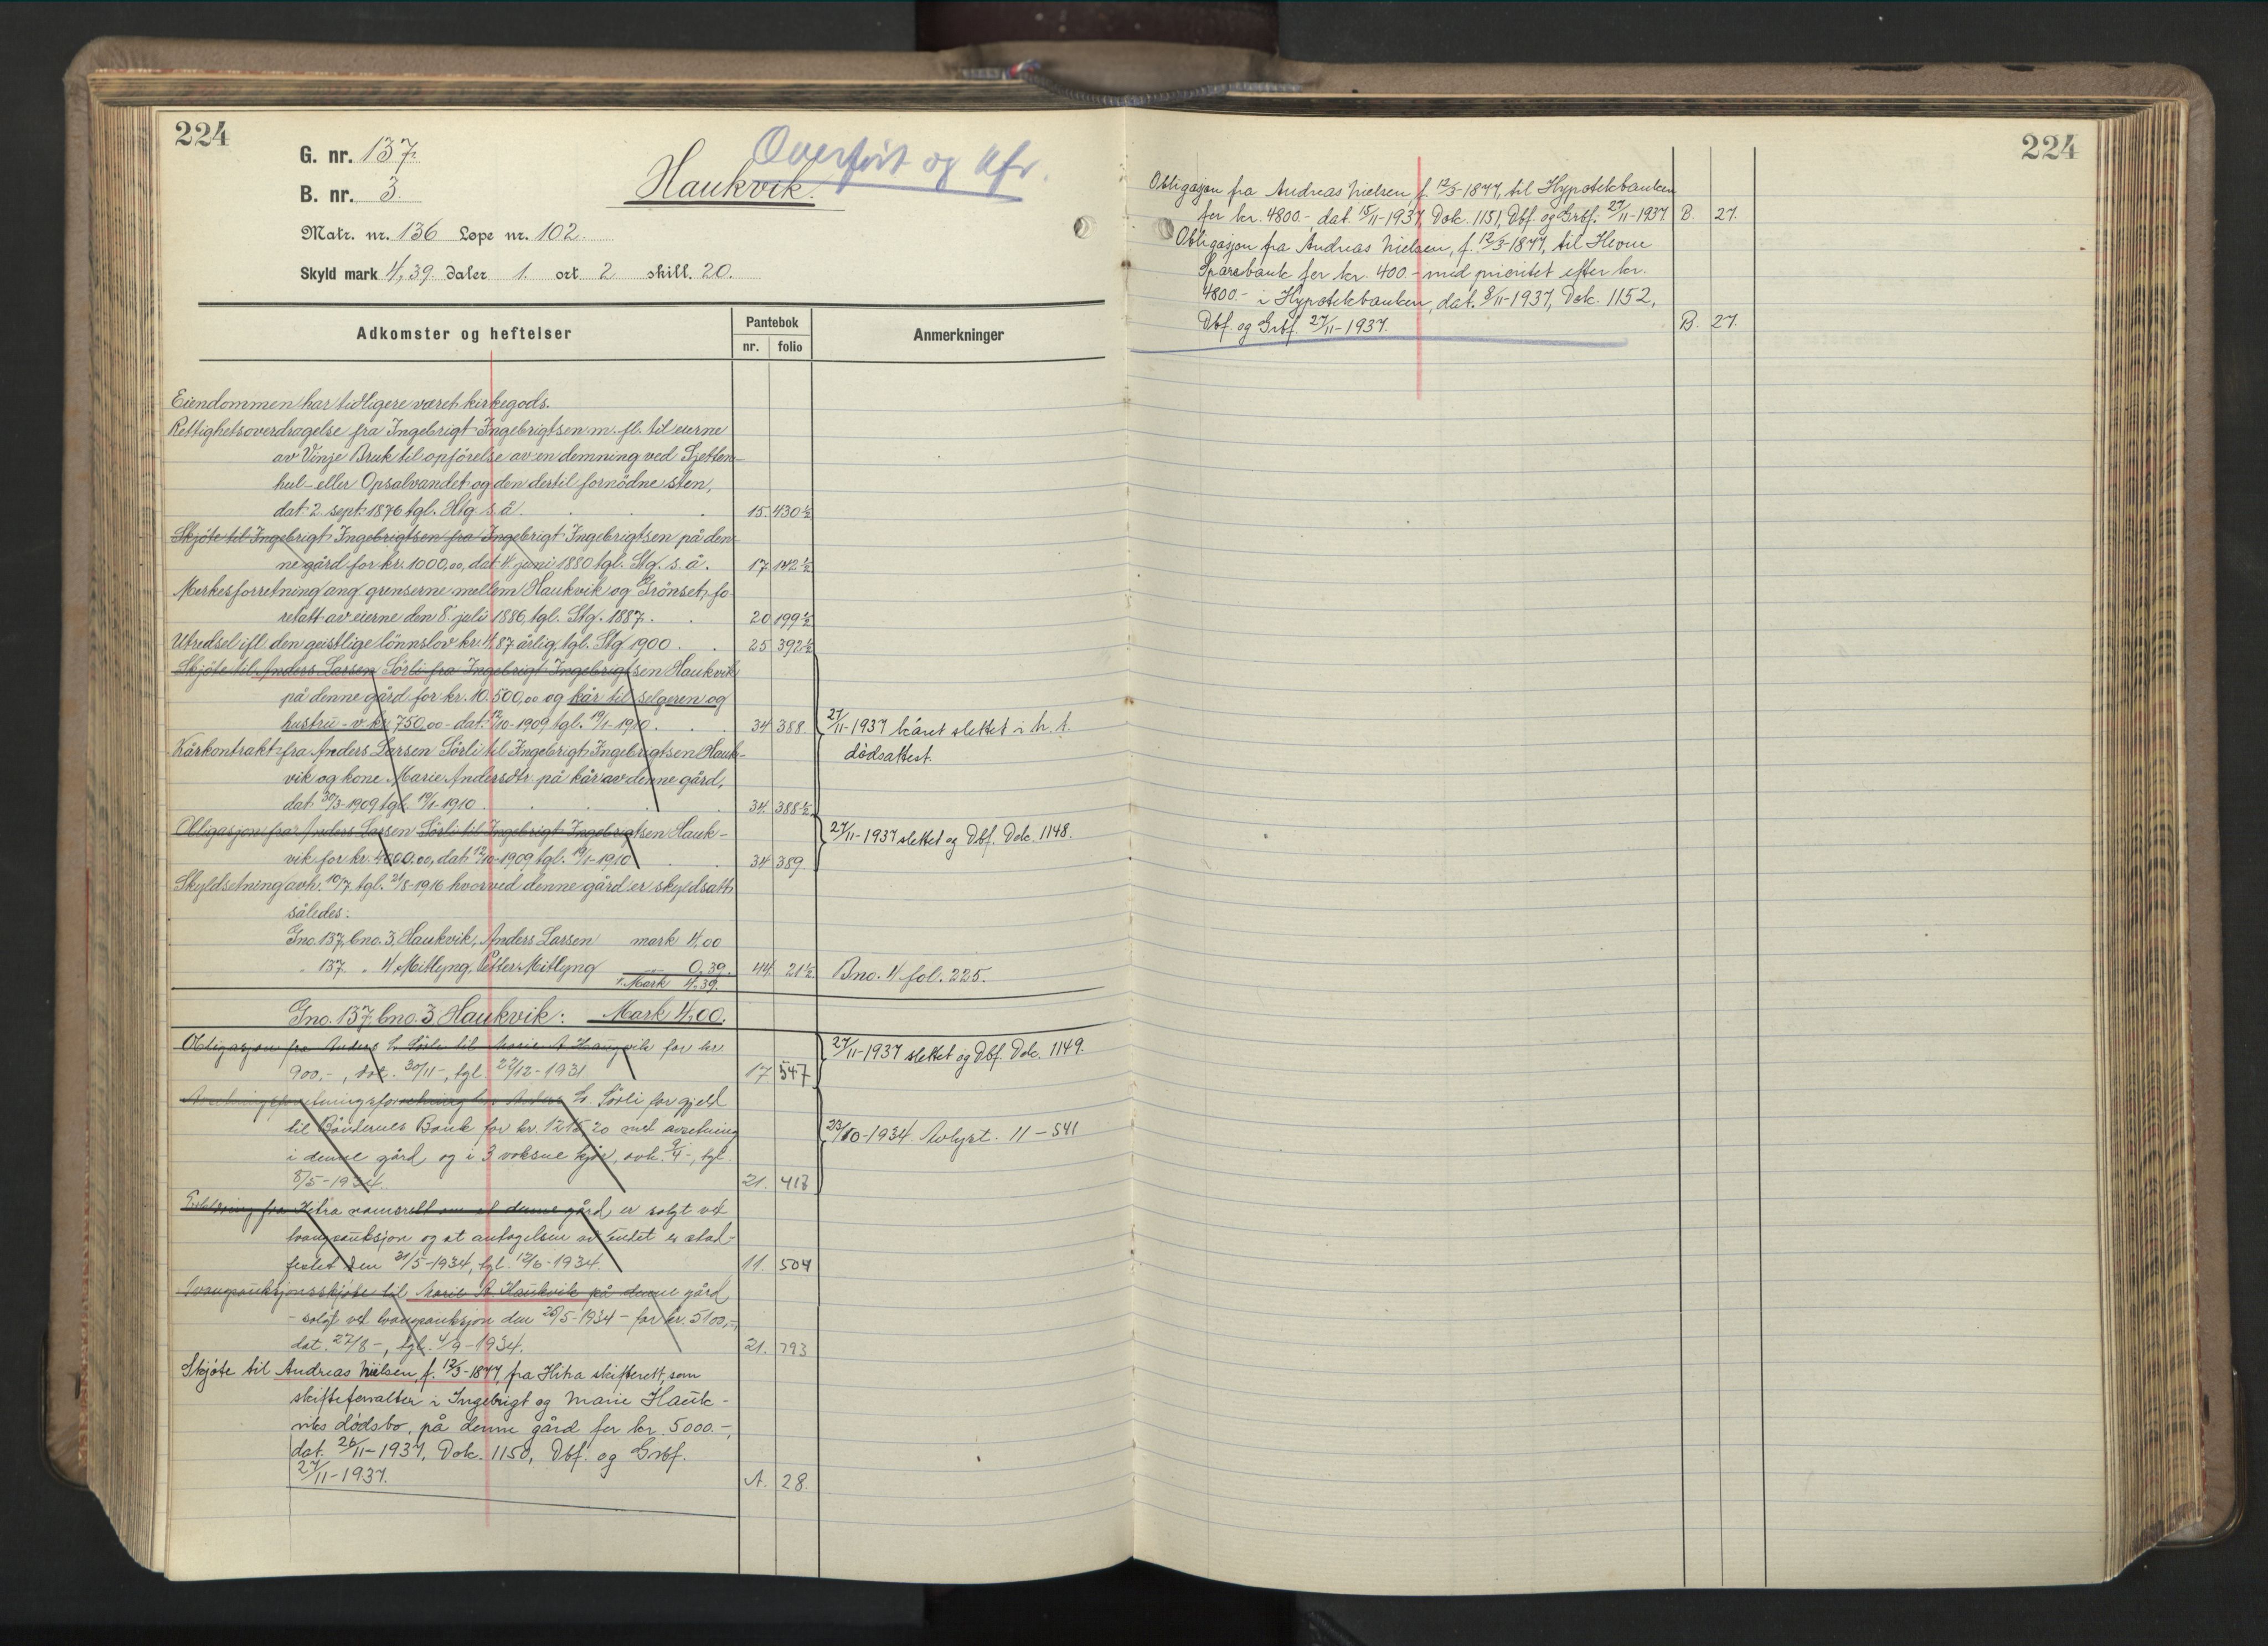 224
G. nr. 137.
Overført og kfr.
B. nr. 3.
Haukvik.
Matr. nr. 136 Løpe nr. 102.
Skyld mark 4,39. daler 1. ort 2 skill. 20.
Adkomster og heftelser
Pantebok
nr. folio
Anmerkninger
Eiendommen har tidligere været kirkegods.
Rettighetsoverdragelse fra Ingebrigt Ingebrigtsen m. fl. til eierne
av Vinje Bruk til opførelse av en demning ved Sjetten-
hul- eller Opsalvandet og den dertil fornødne sten,
dat. 2. sept. 1876 tgl. Htg. s. å. 15. 430½
Skjøte til Ingebrigt Ingebrigtsen fra Ingebrigt Ingebrigtsen på den-
ne gård for kr. 1000,00, dat. 4. juni 1880 tgl. Stg. s. å. 17 142½
Merkesforretning ang. grenserne mellem Haukvik og Grönset, fo-
retatt av eierne den 8. juli 1886, tgl. Stg. 1887. 20 199½
Utredsel ifl. den geistlige lönnslov kr. 4,87 årlig, tgl. Stg 1900. 25 392½
Skjöte til Anders Larsen Sörli fra Ingebrigt Ingebrigtsen Haukvik
på denne gård for kr. 10.500,00 og kår til selgeren og
hustru - v. kr. 750,00 - dat. 12/10-1909 tgl. 19/1-1910. 34 388
27/11-1937 kåret slettet i h. t.
dödsattest.
Kårkontrakt fra Anders Larsen Sörli til Ingebrigt Ingebrigtsen Hauk-
vik og kone Marie Andersdtr. på kår av denne gård,
dat. 30/3-1909 tgl. 19/1-1910. 34. 388½
Obligasjon fra Anders Larsen Sörli til Ingebrigt Ingebrigtsen Hauk-
vik for kr. 4000.00, dat. 12/10-1909 tgl. 19/1-1910 34 389.
27/11-1937 slettet og Dbf. Dok. 1148.
Skyldsetning avh. 10/7 tgl. 21/8-1916 hvorved denne gård er skyldsatt
således:
Gno. 137, bno. 3, Haukvik, Anders Larsen mark 4,00
" 137. " 4 Mitlyng, Petter Mitlyng 0,39. 44. 21½. Bno. 4 fol. 225.
Mark 4.39.
Gno. 137, bno. 3 Haukvik: Mark 4,00.
Obligasjon fra Anders L. Sörli til Marie A. Haugvik for kr.
900,-, dat. 30/11-, tgl. 22/12-1931 17 547
27/11-1937 slettet og Dbf. Dok. 1149.
L. Sörli for gjeld
til Böndernes Bank for kr. 1215.20 med avsetning
i denne gård og i 3 voksne kjör, avh. 9/4-, tgl.
8/5-1934. 21. 418
23/10-1934. Avlyst. 11-541
Erklæring fra Hitra namsrett om at denne gård er solgt ved
tvangsauksjon og at antagelsen av budet er stad-
festet den 31/5-1934, tgl. 12/6-1934. 11. 504
Tvangsauksjonsskjøte til Marie A. Haukvik på denne gård
- solgt ved tvangsauksjon den 26/5-1934 - for kr. 5100,-,
dat. 27/8-, tgl. 4/9-1934. 21. 793
Skjøte til Andreas Nielsen, f. 12/3-1877, fra Hitra skifterett, som
skifteforvalter i Ingebrigt og Marie Hauk-
viks dödsbo, på denne gård for kr. 5000.-,
dat. 26/11-1937, Dok. 1150, Dbf. og Grbf.
27/11-1937. A. 28.
224
Obligasjon fra Andreas Nielsen, f. 12/3-1877, til Hypotekbanken
for kr. 4800.-, dat. 15/11-1937, Dok. 1151, Dbf. og Grbf. 27/11-1937 B. 27.
Obligasjon fra Andreas Nielsen, f. 12/3-1877, til Hevne
Sparebank for kr. 400.- med prioritet efter kr.
4800.- i Hypotekbanken, dat. 8/11-1937, Dok. 1152,
Dbf. og Grbf. 27/11-1937. B. 27.